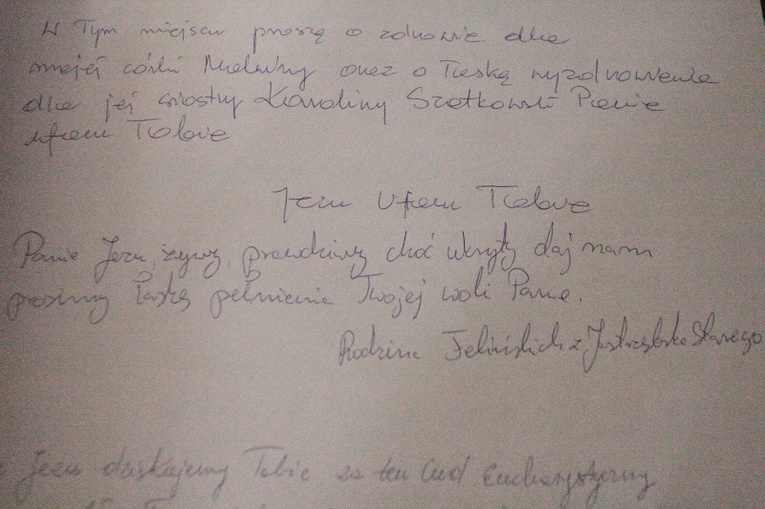 W Tym miejscu proszę o zdrowie dla
mojej córki Meluzyny oraz o łaskę wyzdrowienia
dla jej siostry Karoliny Szotkowski Panie
ufam Tobie
Jezu Ufam Tobie
Panie Jezu, żywy, prawdziwy choć ukryty daj nam
prosimy łaskę pełnienia Twojej woli Panie.
Rodzina Felińskich z Jastrzębska Starego
Jezu dziękujemy Tobie za ten Cud Eucharystyczny